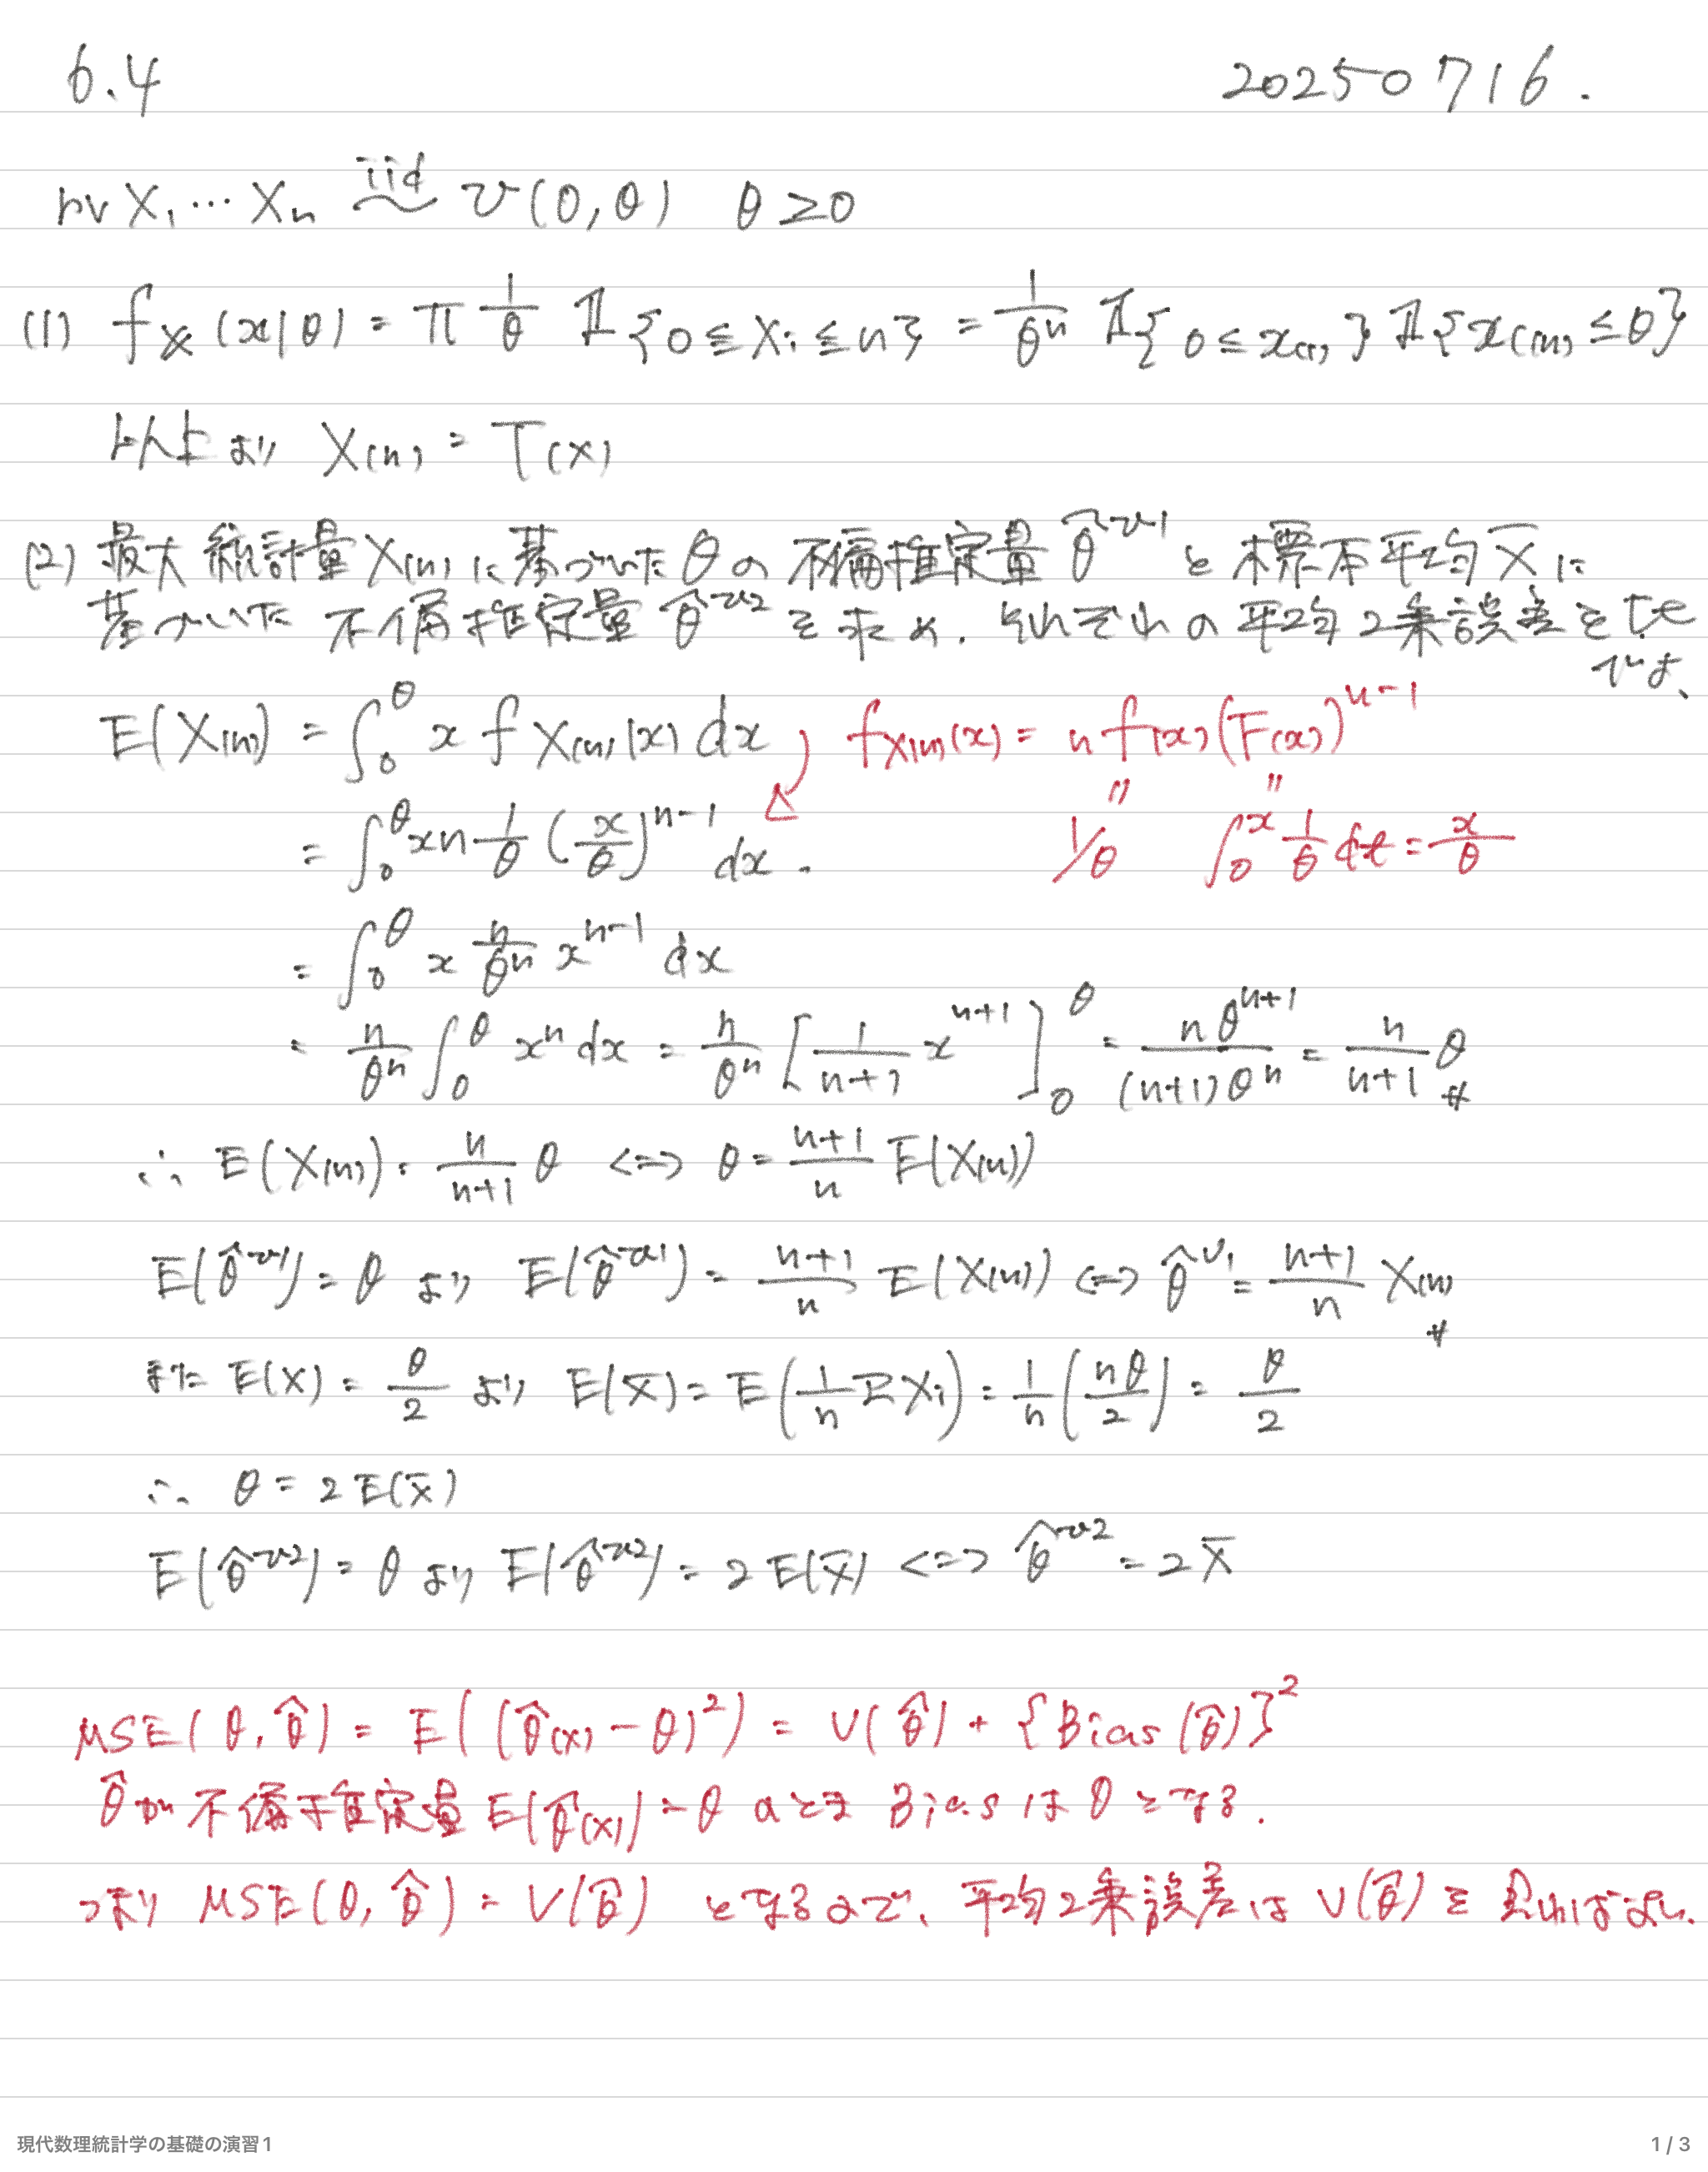 6.4
20250716.
rv X₁…Xₙ iid~ U(0,θ) θ≥0
(1) f_X(x|θ) = Π 1/θ 𝟙{0≦Xᵢ≦n} = 1/θⁿ 𝟙{0≤x₍₁₎} 𝟙{x₍ₙ₎≤θ}
以上より X₍ₙ₎ = T(X)
(2) 最大統計量X₍ₙ₎に基づいたθの不偏推定量 θ̂^U1 と標本平均X̄に
基づいた不偏推定量 θ̂^U2 を求め、それぞれの平均2乗誤差を
E(X₍ₙ₎) = ∫₀^θ x f_X₍ₙ₎(x) dx
f_X₍ₙ₎(x) = n f(x)(F(x))^{n-1}
= ∫₀^θ x n 1/θ (x/θ)^{n-1} dx.
" "
1/θ ∫₀^x 1/θ dt = x/θ
= ∫₀^θ x n/θⁿ x^{n-1} dx
= n/θⁿ ∫₀^θ xⁿ dx = n/θⁿ [1/(n+1) x^{n+1}]₀^θ = nθ^{n+1}/((n+1)θⁿ) = n/(n+1) θ #
∴ E(X₍ₙ₎) = n/(n+1) θ <=> θ = (n+1)/n E(X₍ₙ₎)
E(θ̂^U1) = θ より E(θ̂^U1) = (n+1)/n E(X₍ₙ₎) <=> θ̂^U1 = (n+1)/n X₍ₙ₎ #
また E(X) = θ/2 より E(X̄) = E(1/n ΣXᵢ) = 1/n (nθ/2) = θ/2
∴ θ = 2E(X̄)
E(θ̂^U2) = θ より E(θ̂^U2) = 2E(X̄) <=> θ̂^U2 = 2X̄
MSE(θ,θ̂) = E((θ̂(X)-θ)²) = V(θ̂) + {Bias(θ̂)}²
θ̂が不偏推定量 E(θ̂(X)) = θ のとき Bias は 0 となる.
つまり MSE(θ,θ̂) = V(θ̂) となるので、平均2乗誤差は V(θ̂) を みればよい.
現代数理統計学の基礎の演習1
1 / 3